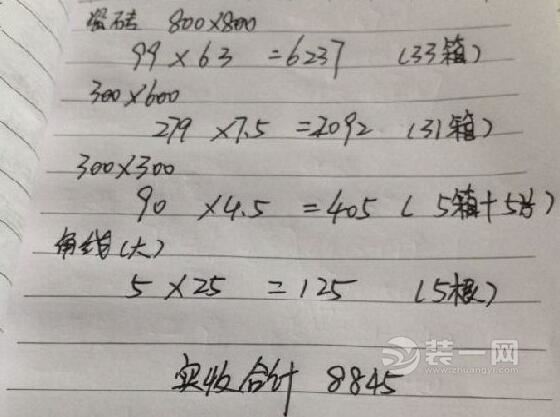 瓷砖 800×800
99×63=6237 (33箱)
300×600
279×7.5=2092 (31箱)
300×300
90×4.5=405 (5箱+5片)
角线(大)
5×25=125 (5根)
实收合计 8845
装一网
zhuangyi.com